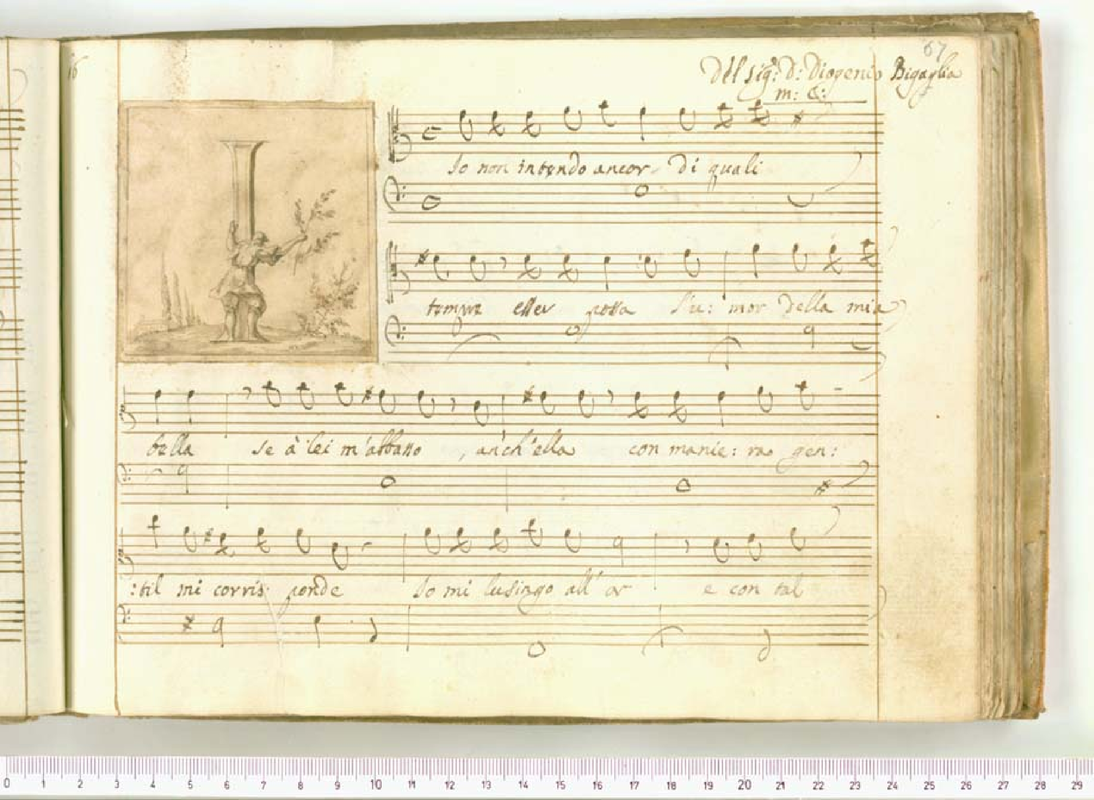 67
16
Del sig.r D: Diogenio Bigaglia
m: C:
Io non intendo ancor di quali
tempre esser possa l'u: mor della mia
bella se à lei m'abbasso, anch'ella con manie: ra gen:
:til mi corris: ponde Io mi lusingo all'or e con tal
0 1 2 3 4 5 6 7 8 9 10 11 12 13 14 15 16 17 18 19 20 21 22 23 24 25 26 27 28 29